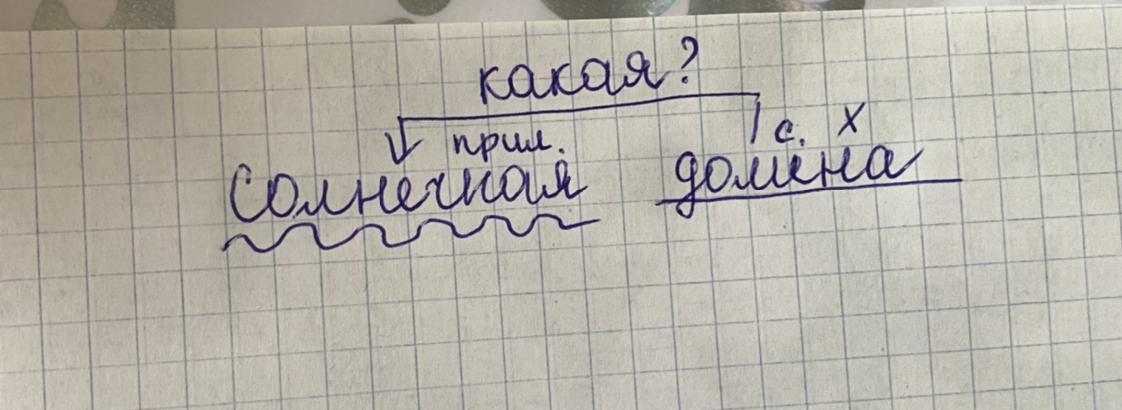 какая?
прил. с. х
Солнечная долина